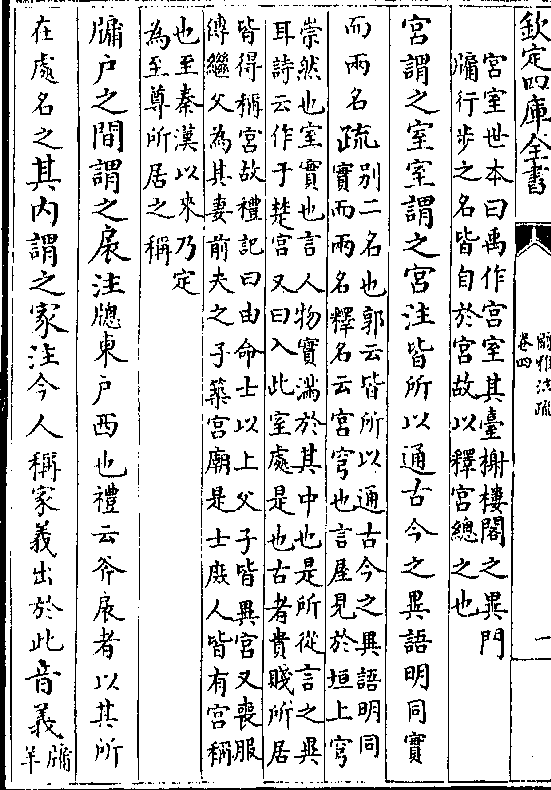 欽定四庫全書
爾雅注疏
卷四
一
宮室世本曰禹作宮室其臺榭樓閣之異門
牗行步之名皆自於宮故以釋宮總之也
宮謂之室室謂之宮注皆所以通古今之異語明同實
而兩名疏
别二名也郭云皆所以通古今之異語明同
實而兩名釋名云宮穹也言屋見於垣上穹
崇然也室實也言人物實滿於其中也是所從言之異
耳詩云作于楚宮又曰入此室處是也古者貴賤所居
皆得稱宮故禮記曰由命士以上父子皆異宮又喪服
傳繼父為其妻前夫之子築宮廟是士庶人皆有宮稱
也至秦漢以來乃定
為至尊所居之稱
牖户之間謂之扆注牕東户西也禮云斧扆者以其所
在處名之其内謂之家注今人稱家義出於此音義
牖
羊